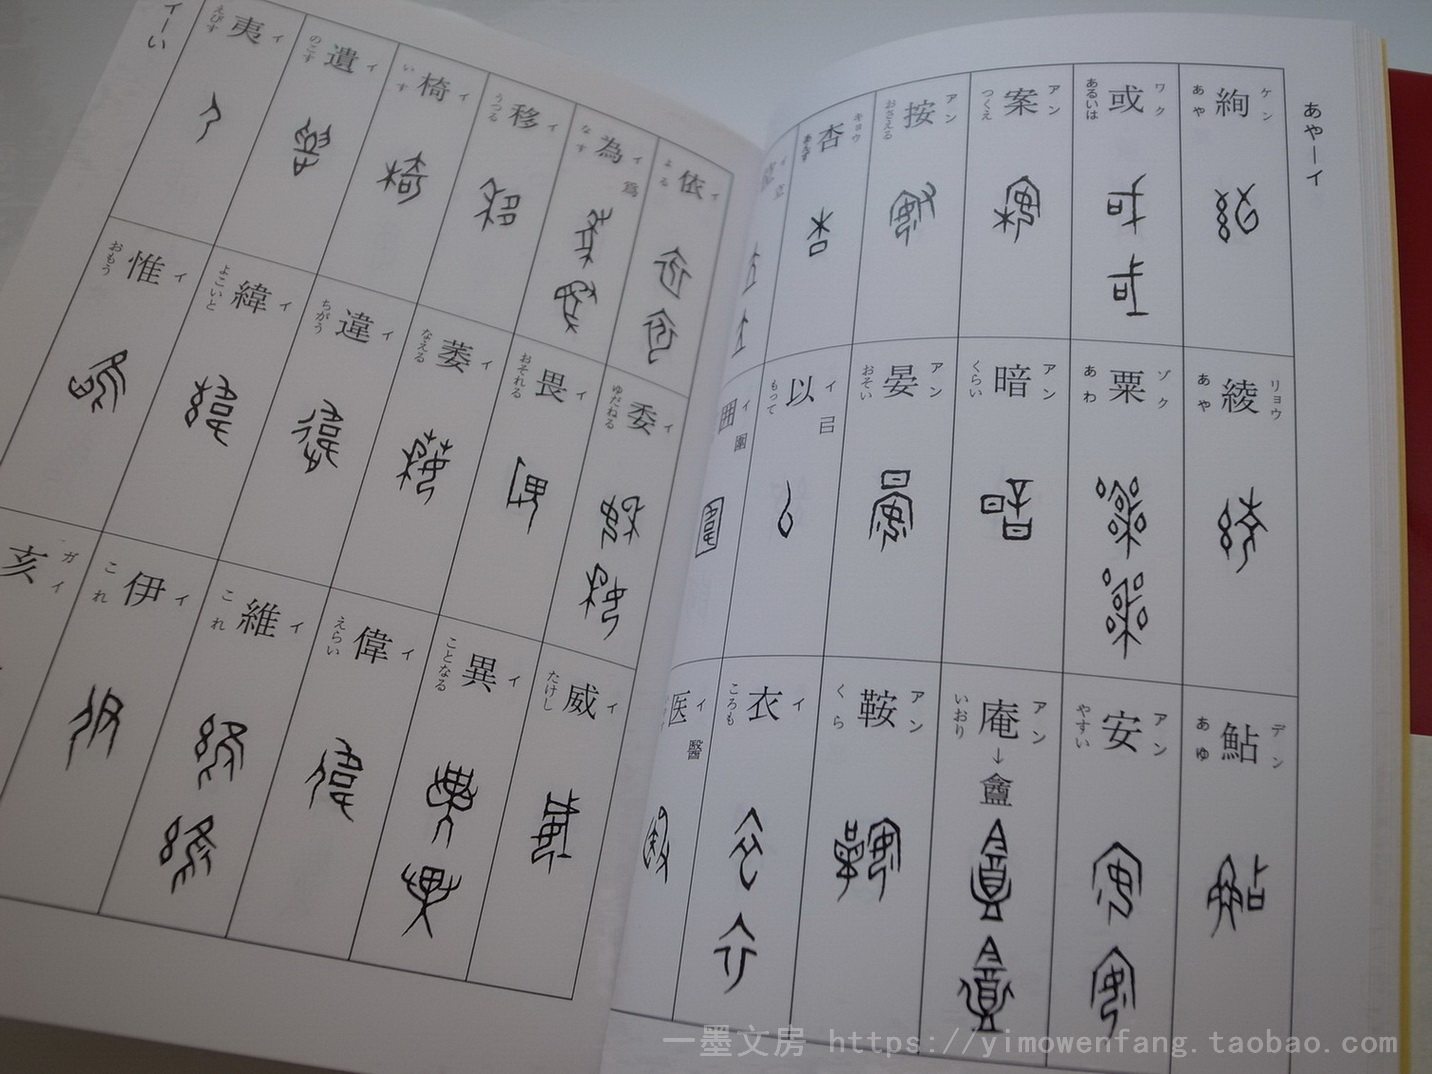 あやーイ
絢 ケン あや
綾 リョウ あや
鮎 デン あゆ
或 ワク あるいは
粟 ゾク あわ
安 アン やすい
案 アン つくえ
暗 アン くらい
庵 アン いおり → 盦
按 アン おさえる
晏 アン おそい
鞍 アン くら
杏 キョウ あんず
以 イ もって 㠯
衣 イ ころも
イ
囲 イ 圍
医 イ 醫
依 イ よる
委 イ ゆだねる
威 イ たけし
為 イ なす 爲
畏 イ おそれる
異 イ ことなる
移 イ うつる
萎 イ なえる
偉 イ えらい
椅 イ いす
違 イ ちがう
維 イ これ
遺 イ のこす
緯 イ よこいと
伊 イ これ
夷 イ えびす
惟 イ おもう
亥 ガイ
イーい
一墨文房 https://yimowenfang.taobao.com